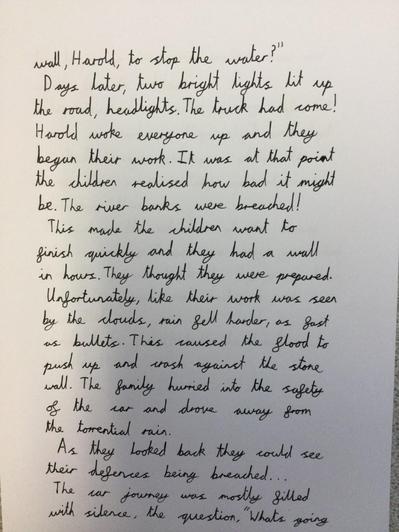 wall, Harold, to stop the water?"
Days later, two bright lights lit up
the road, headlights. The truck had come!
Harold woke everyone up and they
began their work. It was at that point
the children realised how bad it might
be. The river banks were breached!
This made the children want to
finish quickly and they had a wall
in hours. They thought they were prepared.
Unfortunately, like their work was seen
by the clouds, rain fell harder, as fast
as bullets. This caused the flood to
push up and crash against the stone
wall. The family hurried into the safety
of the car and drove away from
the torrential rain.
As they looked back they could see
their defences being breached...
The car journey was mostly filled
with silence, the question, "Whats going